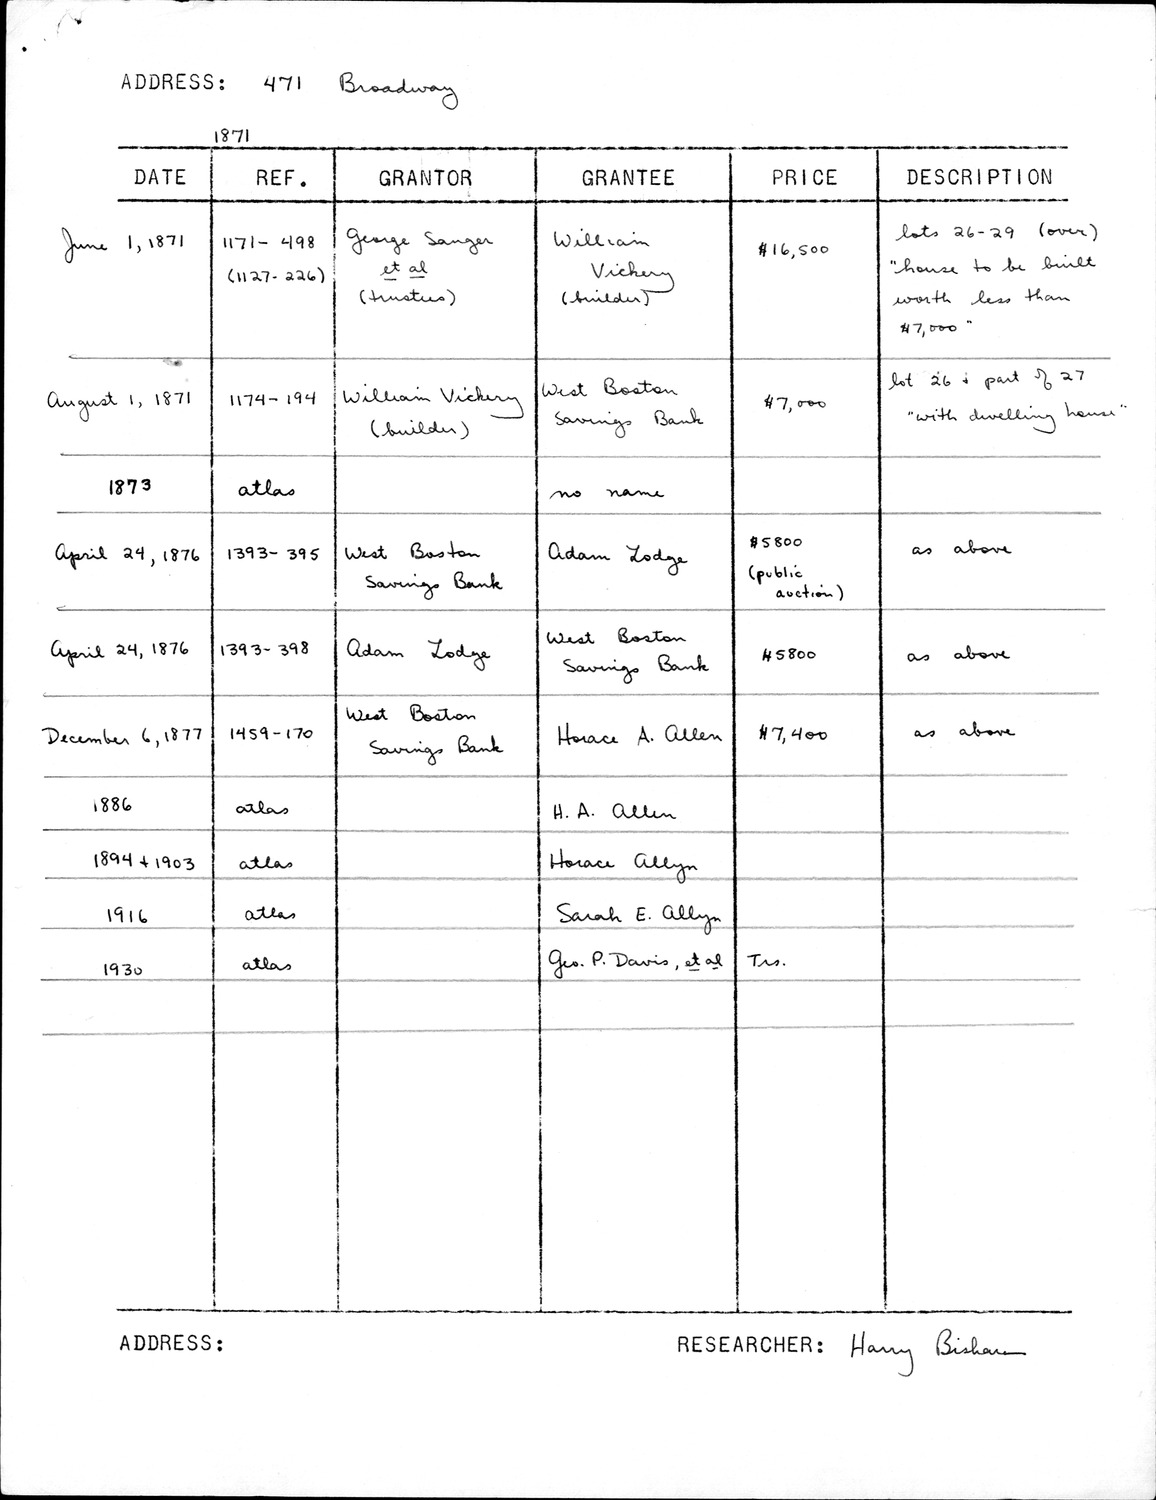 ADDRESS: 471 Broadway
1871
DATE REF. GRANTOR GRANTEE PRICE DESCRIPTION
June 1, 1871 1171-498 George Sanger William $16,500 lots 26-29 (over)
(1127-226) et al Vickery "house to be built
(trustees) (builder) worth less than
$7,000"
August 1, 1871 1174-194 William Vickery West Boston $7,000 lot 26 + part of 27
(builder) Savings Bank "with dwelling house"
1873 atlas no name
April 24, 1876 1393-395 West Boston Adam Lodge $5800 as above
Savings Bank (public
auction)
April 24, 1876 1393-398 Adam Lodge West Boston $5800 as above
Savings Bank
December 6, 1877 1459-170 West Boston Horace A. Allen $7,400 as above
Savings Bank
1886 atlas H. A. Allen
1894 + 1903 atlas Horace Allyn
1916 atlas Sarah E. Allyn
1930 atlas Geo. P. Davis, et al Trs.
ADDRESS: RESEARCHER: Harry